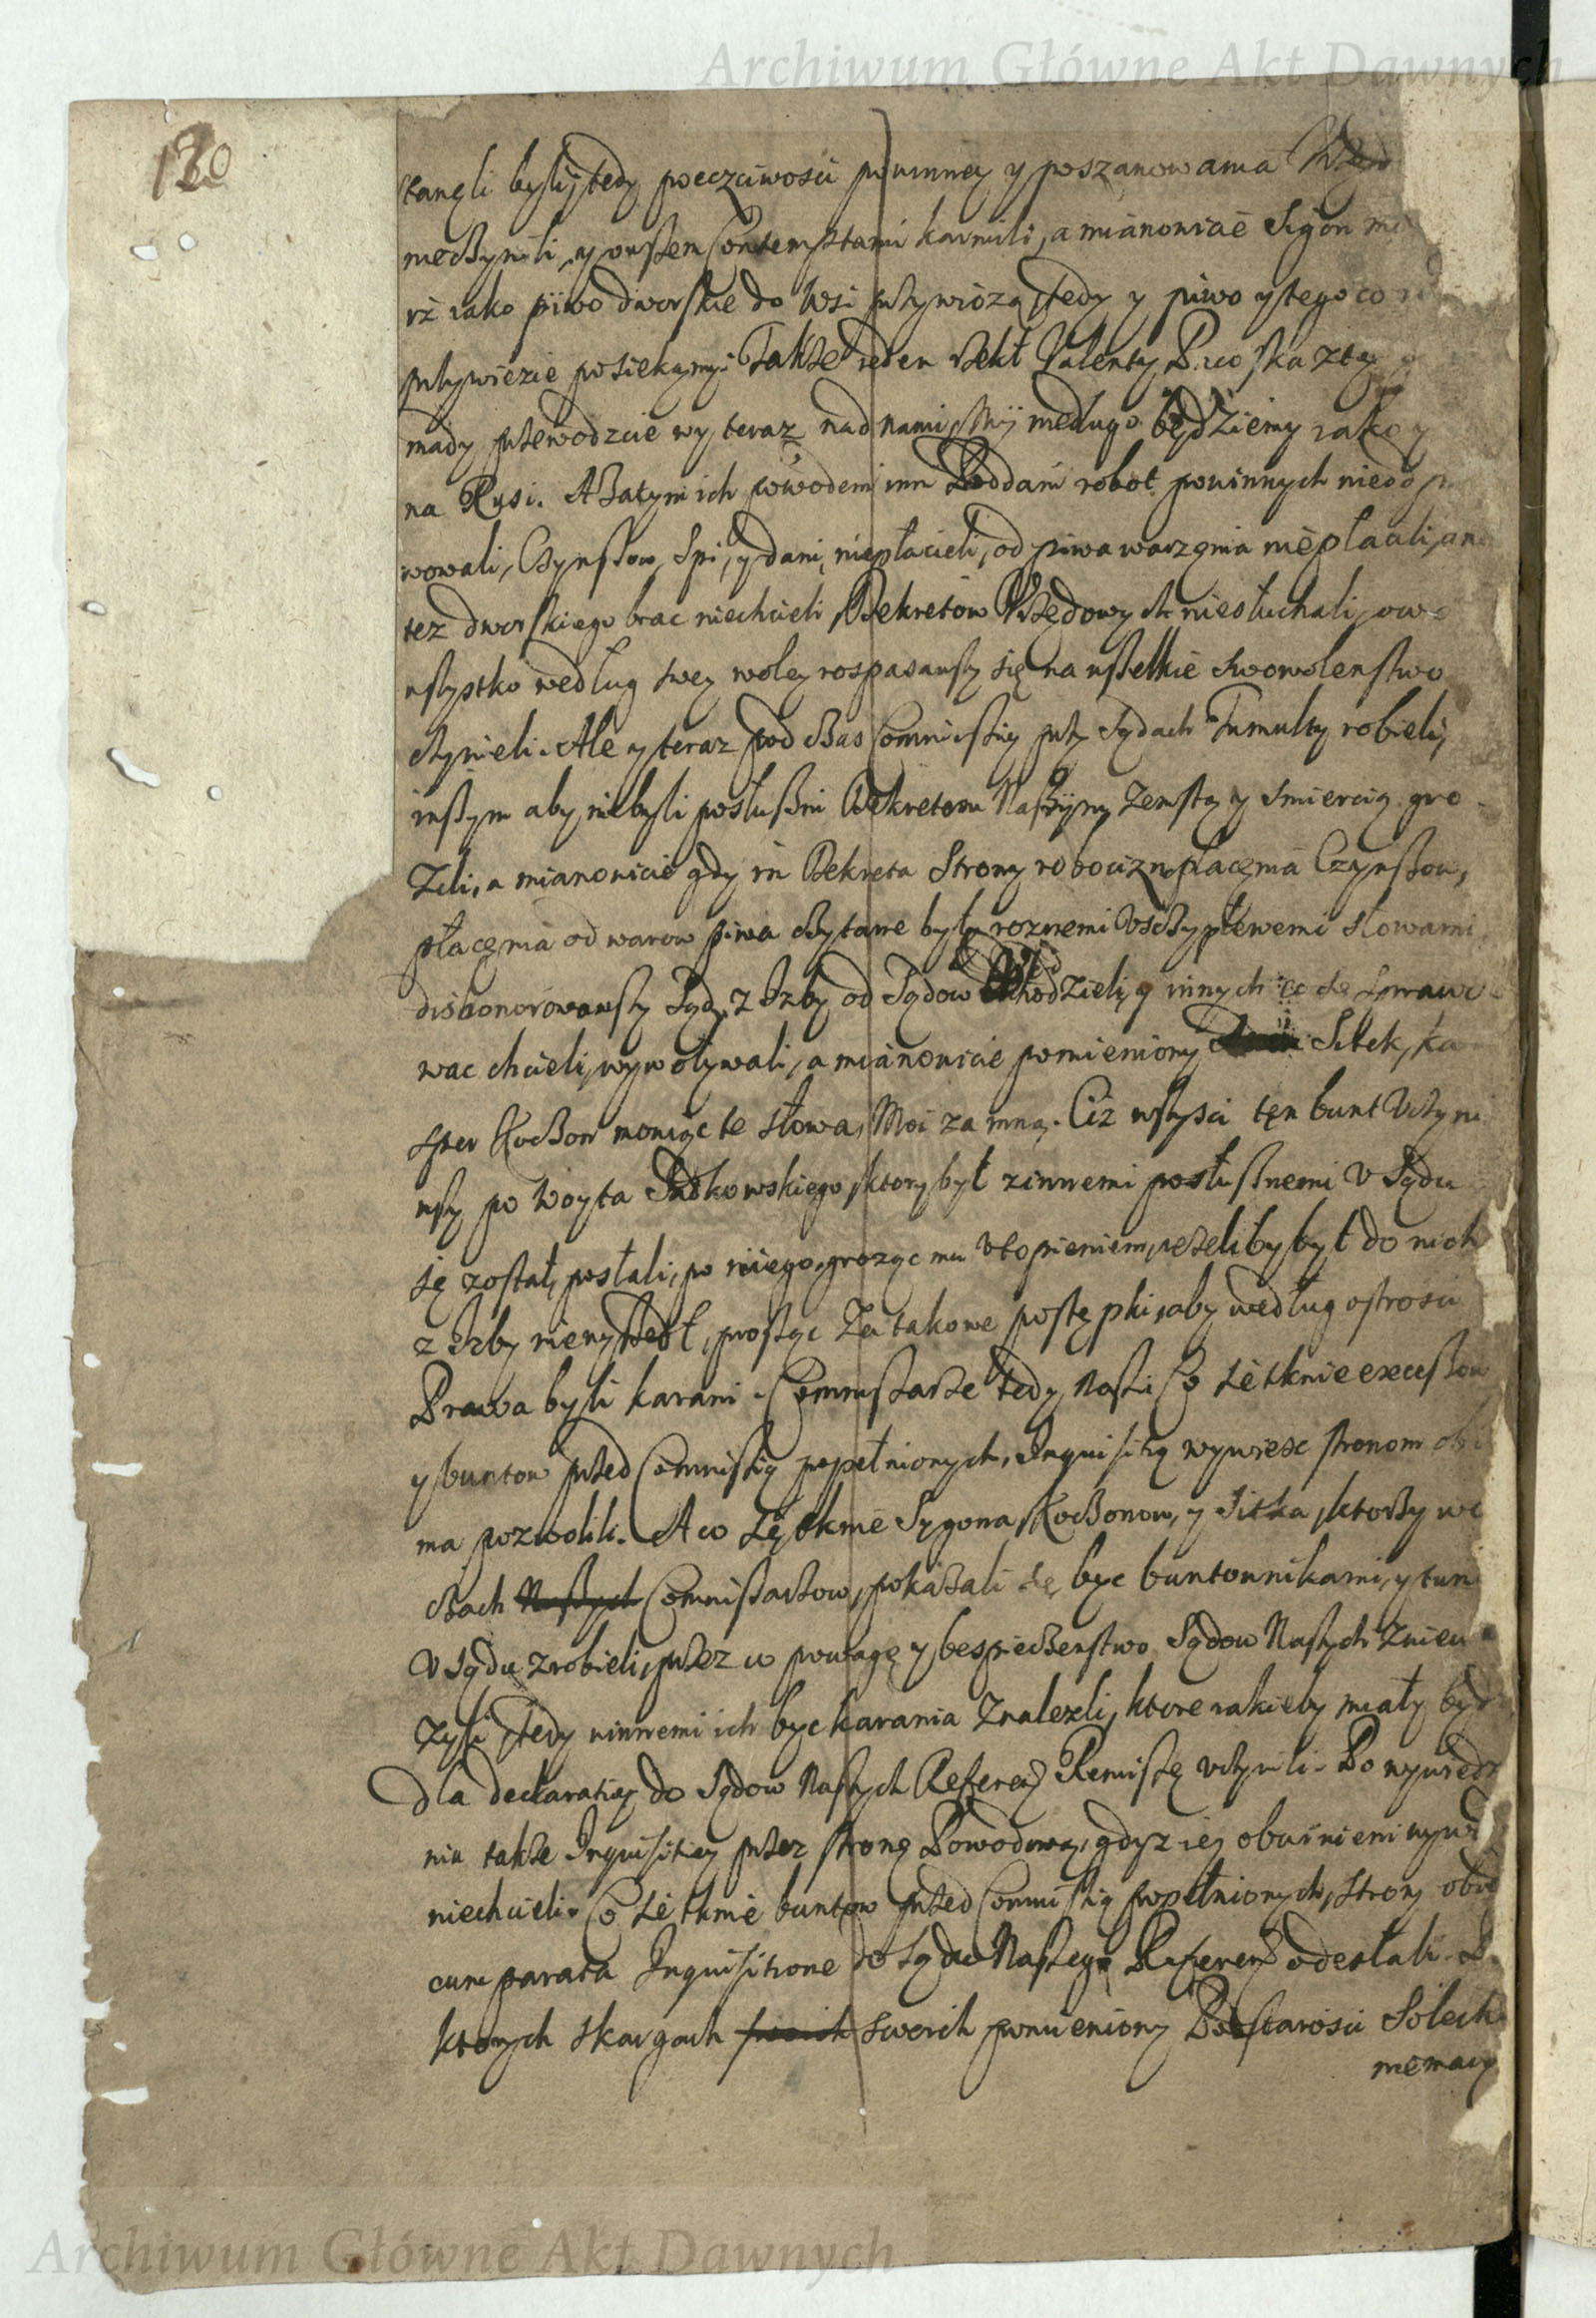 Archiwum Główne Akt Dawnych
130
stanęli byli, tedy poczciwości powinney y poszanowania
nieczynili, y owszem Contemptami karmili, a mianowicie Sigon
iż iako piwo dworskie do Wsi przywiozą, tedy y piwo y tego co
przywiezie posiekamy. Takze ieden rzekł Valenty z tey
mady przewodzcie wy teraz nad nami, My niedługo będziemy iako y
na Rusi. A zatym ich powodem inni Poddani robot powinnych
wowali, Czynszow, Spi, y dani, niepłacieli, od piwa warzenia niepłacili, ani
tez dworskiego brac niechcieli, Dekretow Urzędowych niesłuchali, owo
wszystko według swey woley rospasawszy się na wszelkie swowolenstwo
czynieli. Ale y teraz pod czas Commissiy przy Sądach Tumulty robieli,
inszym aby niebyli posłuszni Dekretom Naszym, Zemstą y smiercią gro-
zieli, a mianowicie gdy im Dekreta Strony robocizn, płacenia Czynszow,
płacenia od warow piwa czytane były, roznemi Usczypliwemi słowami
dishonorowawszy Sąd, z Izby od Sądow Odchodzieli, y innych co się sprawo-
wac chcieli, wywoływali, a mianowicie pomieniony Sitek, Ka-
sper Kochon mowiąc te słowa, Moi za mną. Ciż wszysci tęn bunt Uczyni-
wszy po Woyta Sadkowskiego, ktory był z innemi posłusznemi U Sądu
się został, posłali, po niego, grożąc mu Utopieniem, ieżeliby był do nich
z Izby niewyszedł, prosząc Za takowe postępki, aby według ostrości
Prawa byli karani. Commissarze tedy Naszi Co się tknie excessow
y buntow przed Commissią popełnionych, Inquisitią wywiesc stronom obie-
ma pozwolili. A co się tknie Sygona, Kochonow, y Sitka, ktorzy w o-
czach Commissarzow, pokazali się byc buntownikami, y tum
U Sądu zrobieli, przez co powagę y bespieczenstwo Sądow Naszych Znie
żyli, tedy winnemi ich byc karania Znalezli, ktore iakieby miały bydz
dla declaratiey do Sądow Naszych Referen: Remissę uczynili. Po wywiedze-
niu takze Inquisitiey przez stronę Powodową, gdysz iey obwinieni wywo
niechcieli. Co się tknie buntow przed Commissią popełnionych, strony obie
cum parata Inquisitione do Sądu Naszego Referen: odesłali. P
ktorych skargach swoich pomieniony Podstarosci Solech
niemaią
Archiwum Główne Akt Dawnych